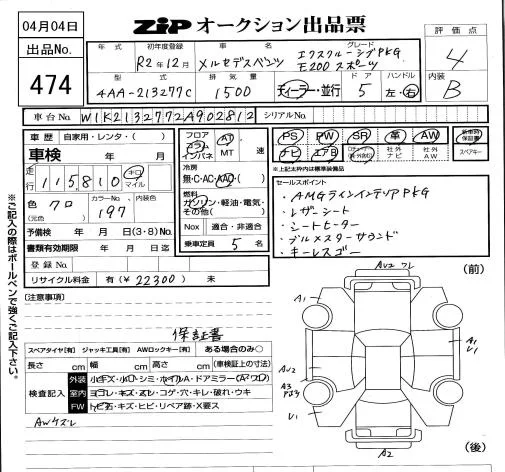 04月04日
出品No.
474
ZIP オークション出品票
年式 初年度登録 車名 グレード
R2年12月 メルセデスベンツ エクスクルーシブPKG
E200スポーツ
型式 排気量 ドア ハンドル
4AA-213277C 1500 ディーラー・並行 5 左・右
評価点
4
内装
B
車台No. W1K2132772A902812 シリアルNo.
車歴 自家用・レンタ・( )
車検 年 月
走行 115810 キロ マイル
色 クロ カラーNo. 197 内装色
(元色)
予備検 年 月 日(3・8)No.
書類有効期限 年 月 日迄
登録No.
リサイクル料金 有(¥ 22300 ) 未
フロア コラム インパネ AT MT 速
冷房
無・C・AC・AAC・( )
燃料
ガソリン・軽油・電気・その他( )
Nox 適合・非適合
乗車定員 5 名
PS PW SR 革 AW 新車時保証書
ナビ エアB 社外ナビ 社外AW スペアキー
※上記太枠内は標準装備品
セールスポイント
・AMGラインインテリアPKG
・レザーシート
・シートヒーター
・ブルメスターサウンド
・キーレスゴー
[注意事項]
保証書
スペアタイヤ[有] ジャッキ工具[有] AWロックキー[有] ある場合のみ○
長さ cm 幅 cm 高さ cm (車検証上の寸法)
検査記入 外装 小キズ・小凹・シミ・ホイルA・ドアミラー(A・ワレ)
室内 ヨゴレ・キズ・スレ・コゲ・穴・キレ・破れ・ウキ
FW トビ石・キズ・ヒビ・リペア跡・X要ス
AWズレ
※ご記入の際はボールペンで強くご記入下さい。
(前)
A1
A1
U1
AU2
A3
U1
A2
(後)